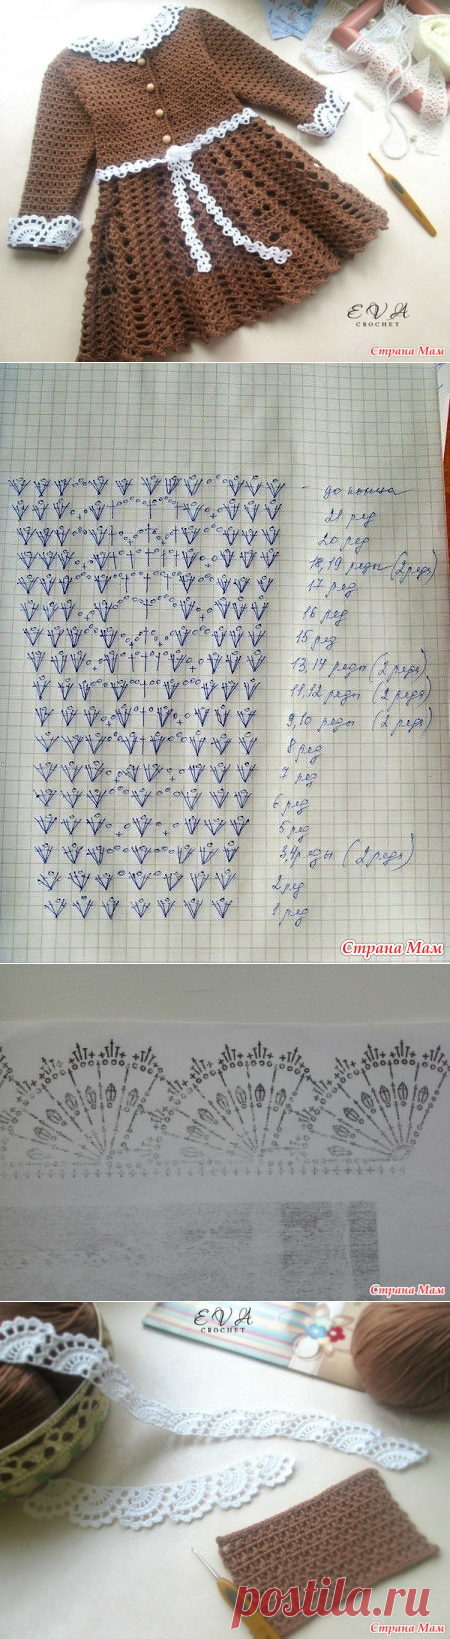 EVA
CROCHET
Страна Мам
до конца
21 ряд
20 ряд
18,19 ряды (2 ряда)
17 ряд
16 ряд
15 ряд
13,14 ряды (2 ряда)
11,12 ряды (2 ряда)
9,10 ряды (2 ряда)
8 ряд
7 ряд
6 ряд
5 ряд
3,4 ряды (2 ряда)
2 ряд
1 ряд
Страна Мам
Страна Мам
EVA
CROCHET
postila.ru
Страна Мам